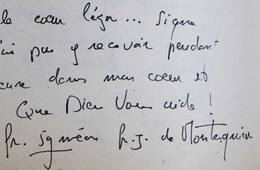 le cœur léger... Signe
pas y recevoir pendant
dans mon cœur et
Que Dieu Vous aide !
fr. Syméon h.j. de Montesquiou